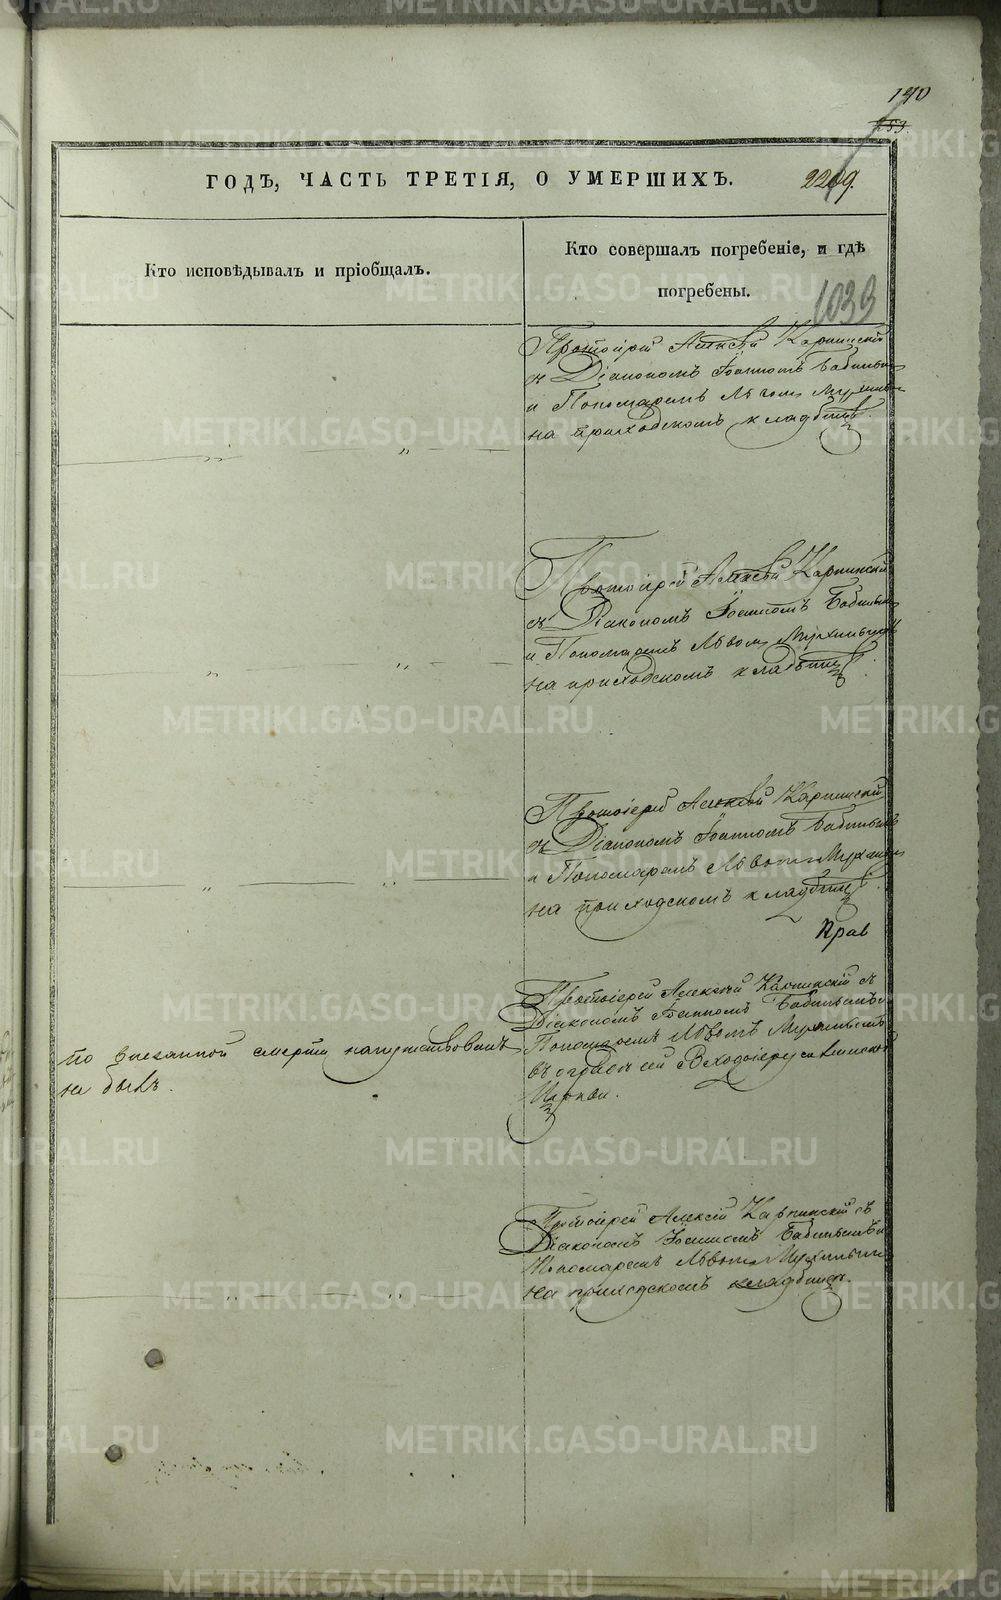 METRIKI.GASO-URAL.RU
190
253.
ГОДЪ, ЧАСТЬ ТРЕТІЯ, О УМЕРШИХЪ.
2209.
Кто исповѣдывалъ и пріобщалъ.
Кто совершалъ погребеніе, и гдѣ
погребены.
1033
Протоіерей Алексѣй Карпинскій
съ Діакономъ Іоанномъ
и Пономаремъ Львомъ
на приходскомъ кладбищѣ.
Протоіерей Алексѣй Карпинскій
съ Діакономъ Іоанномъ
и Пономаремъ Львомъ
на приходскомъ кладбищѣ.
Протоіерей Алексѣй Карпинскій
съ Діакономъ Іоанномъ
и Пономаремъ Львомъ
на приходскомъ кладбищѣ.
Прав
по внезапной смерти напутствованъ
не былъ.
Протоіерей Алексѣй Карпинскій съ
Діакономъ Іоанномъ
Пономаремъ Львомъ
въ оградѣ сей Входоіерусалимской
Церкви.
Протоіерей Алексій Карпинскій съ
Діакономъ Іоанномъ
Пономаремъ Львомъ
на приходскомъ кладбищѣ.